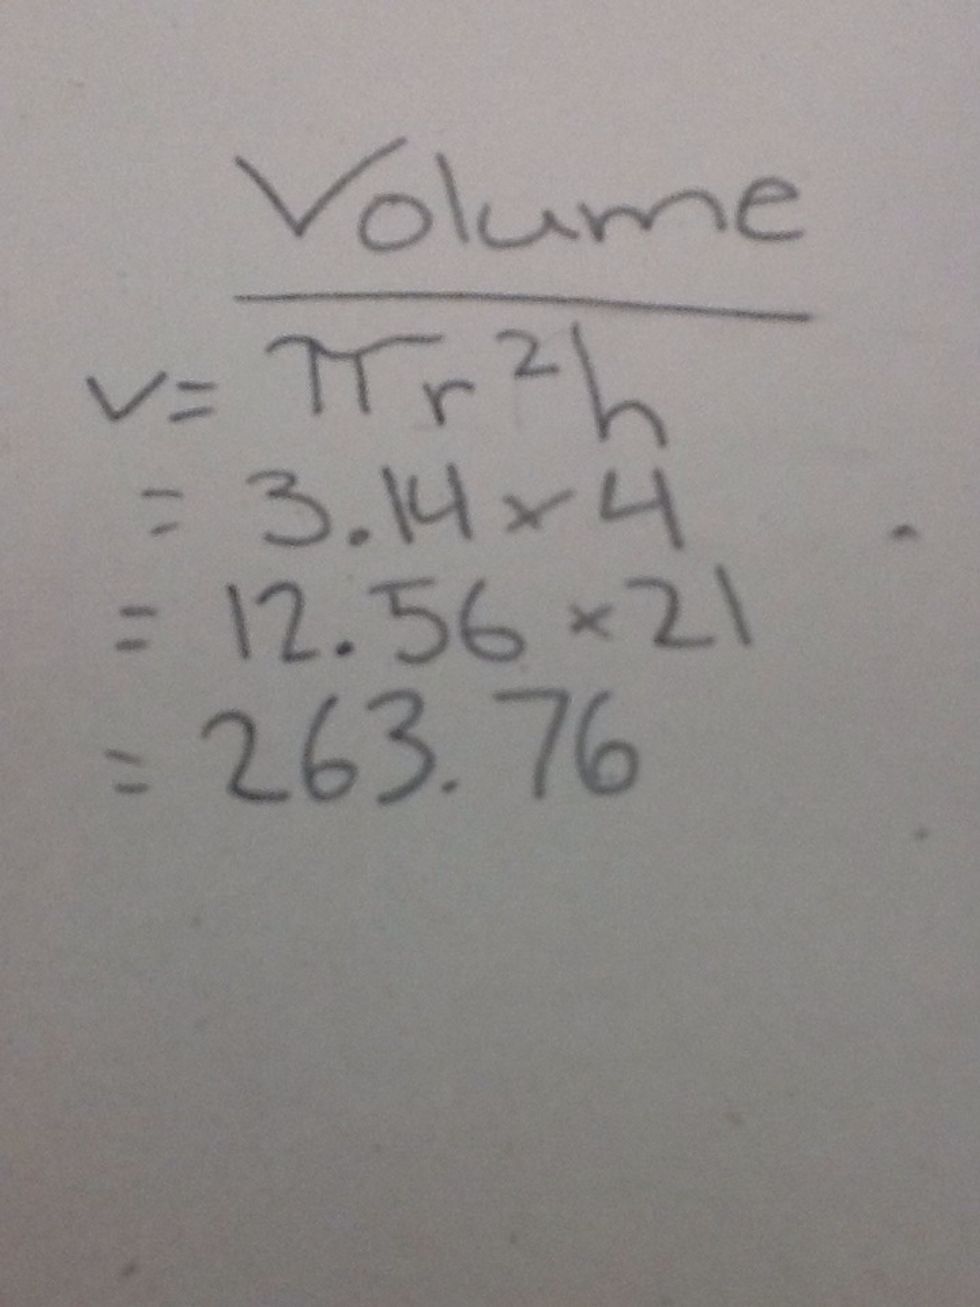 Volume
V= πr²h
= 3.14 x 4
= 12.56 x 21
= 263.76